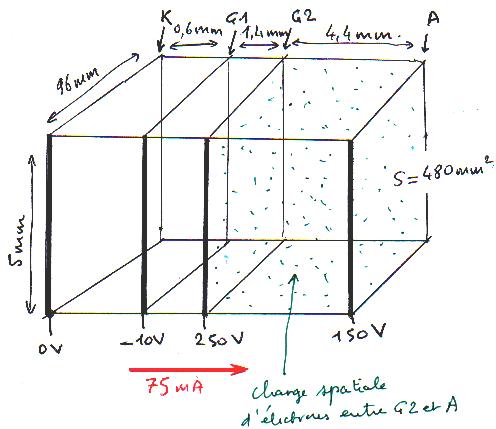 K G1 G2 A
0,6mm 1,4mm 4,4mm.
96mm
S=480mm²
5mm
0V -10V 250V 150V
75mA
charge spatiale
d'électrons entre G2 et A